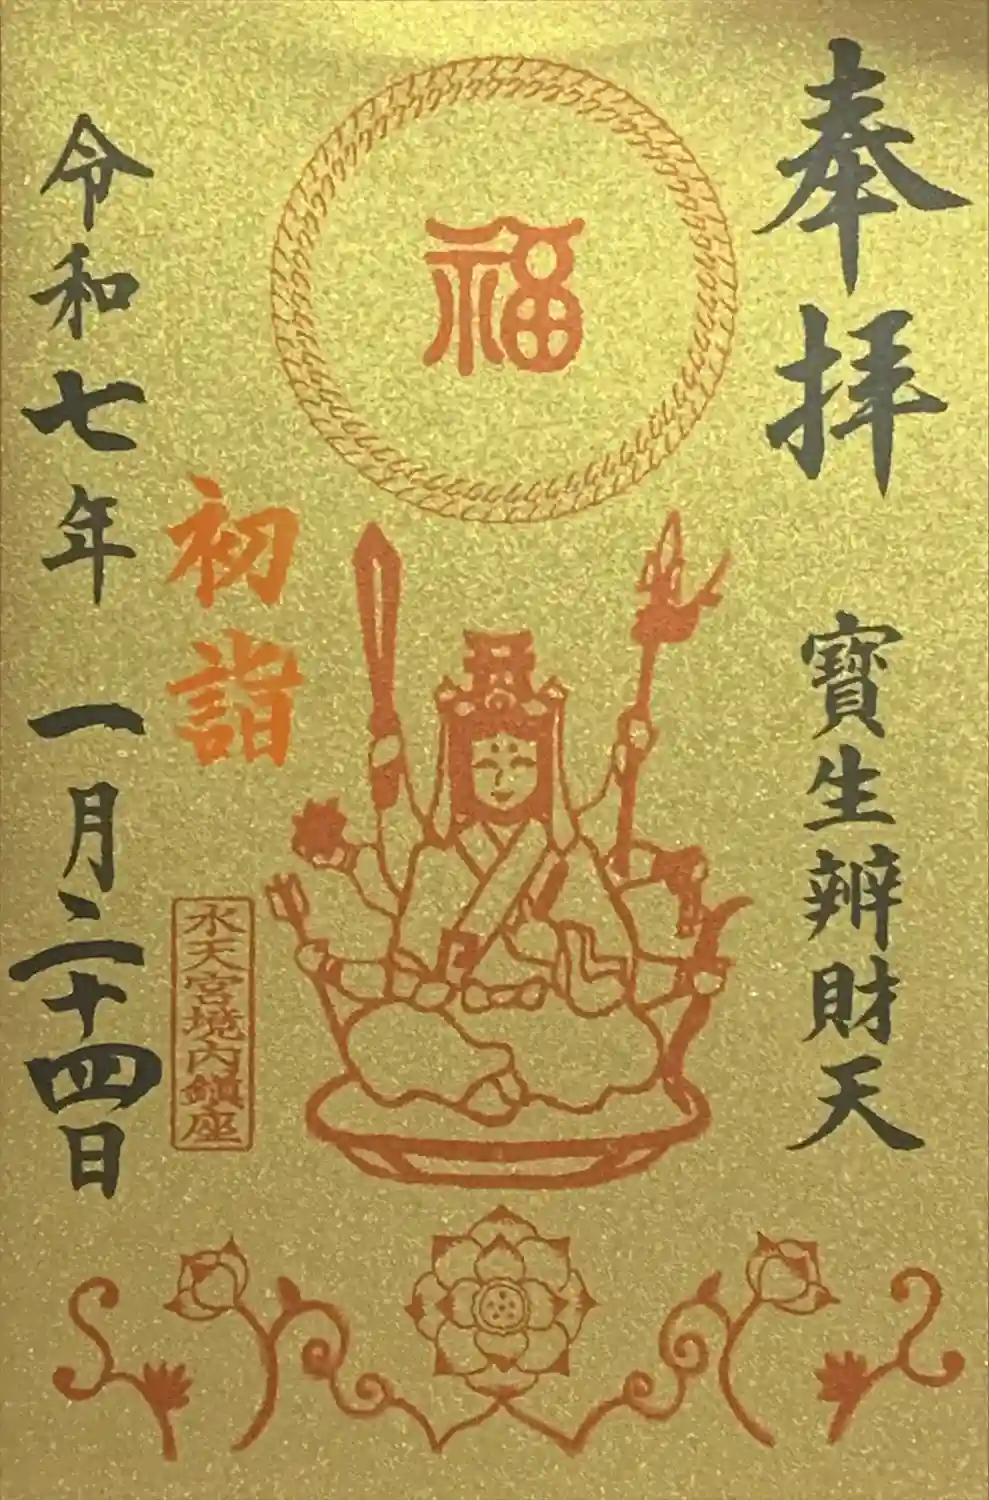 奉拝
寶生辨財天
福
初詣
水天宮境内鎮座
令和七年一月二十四日